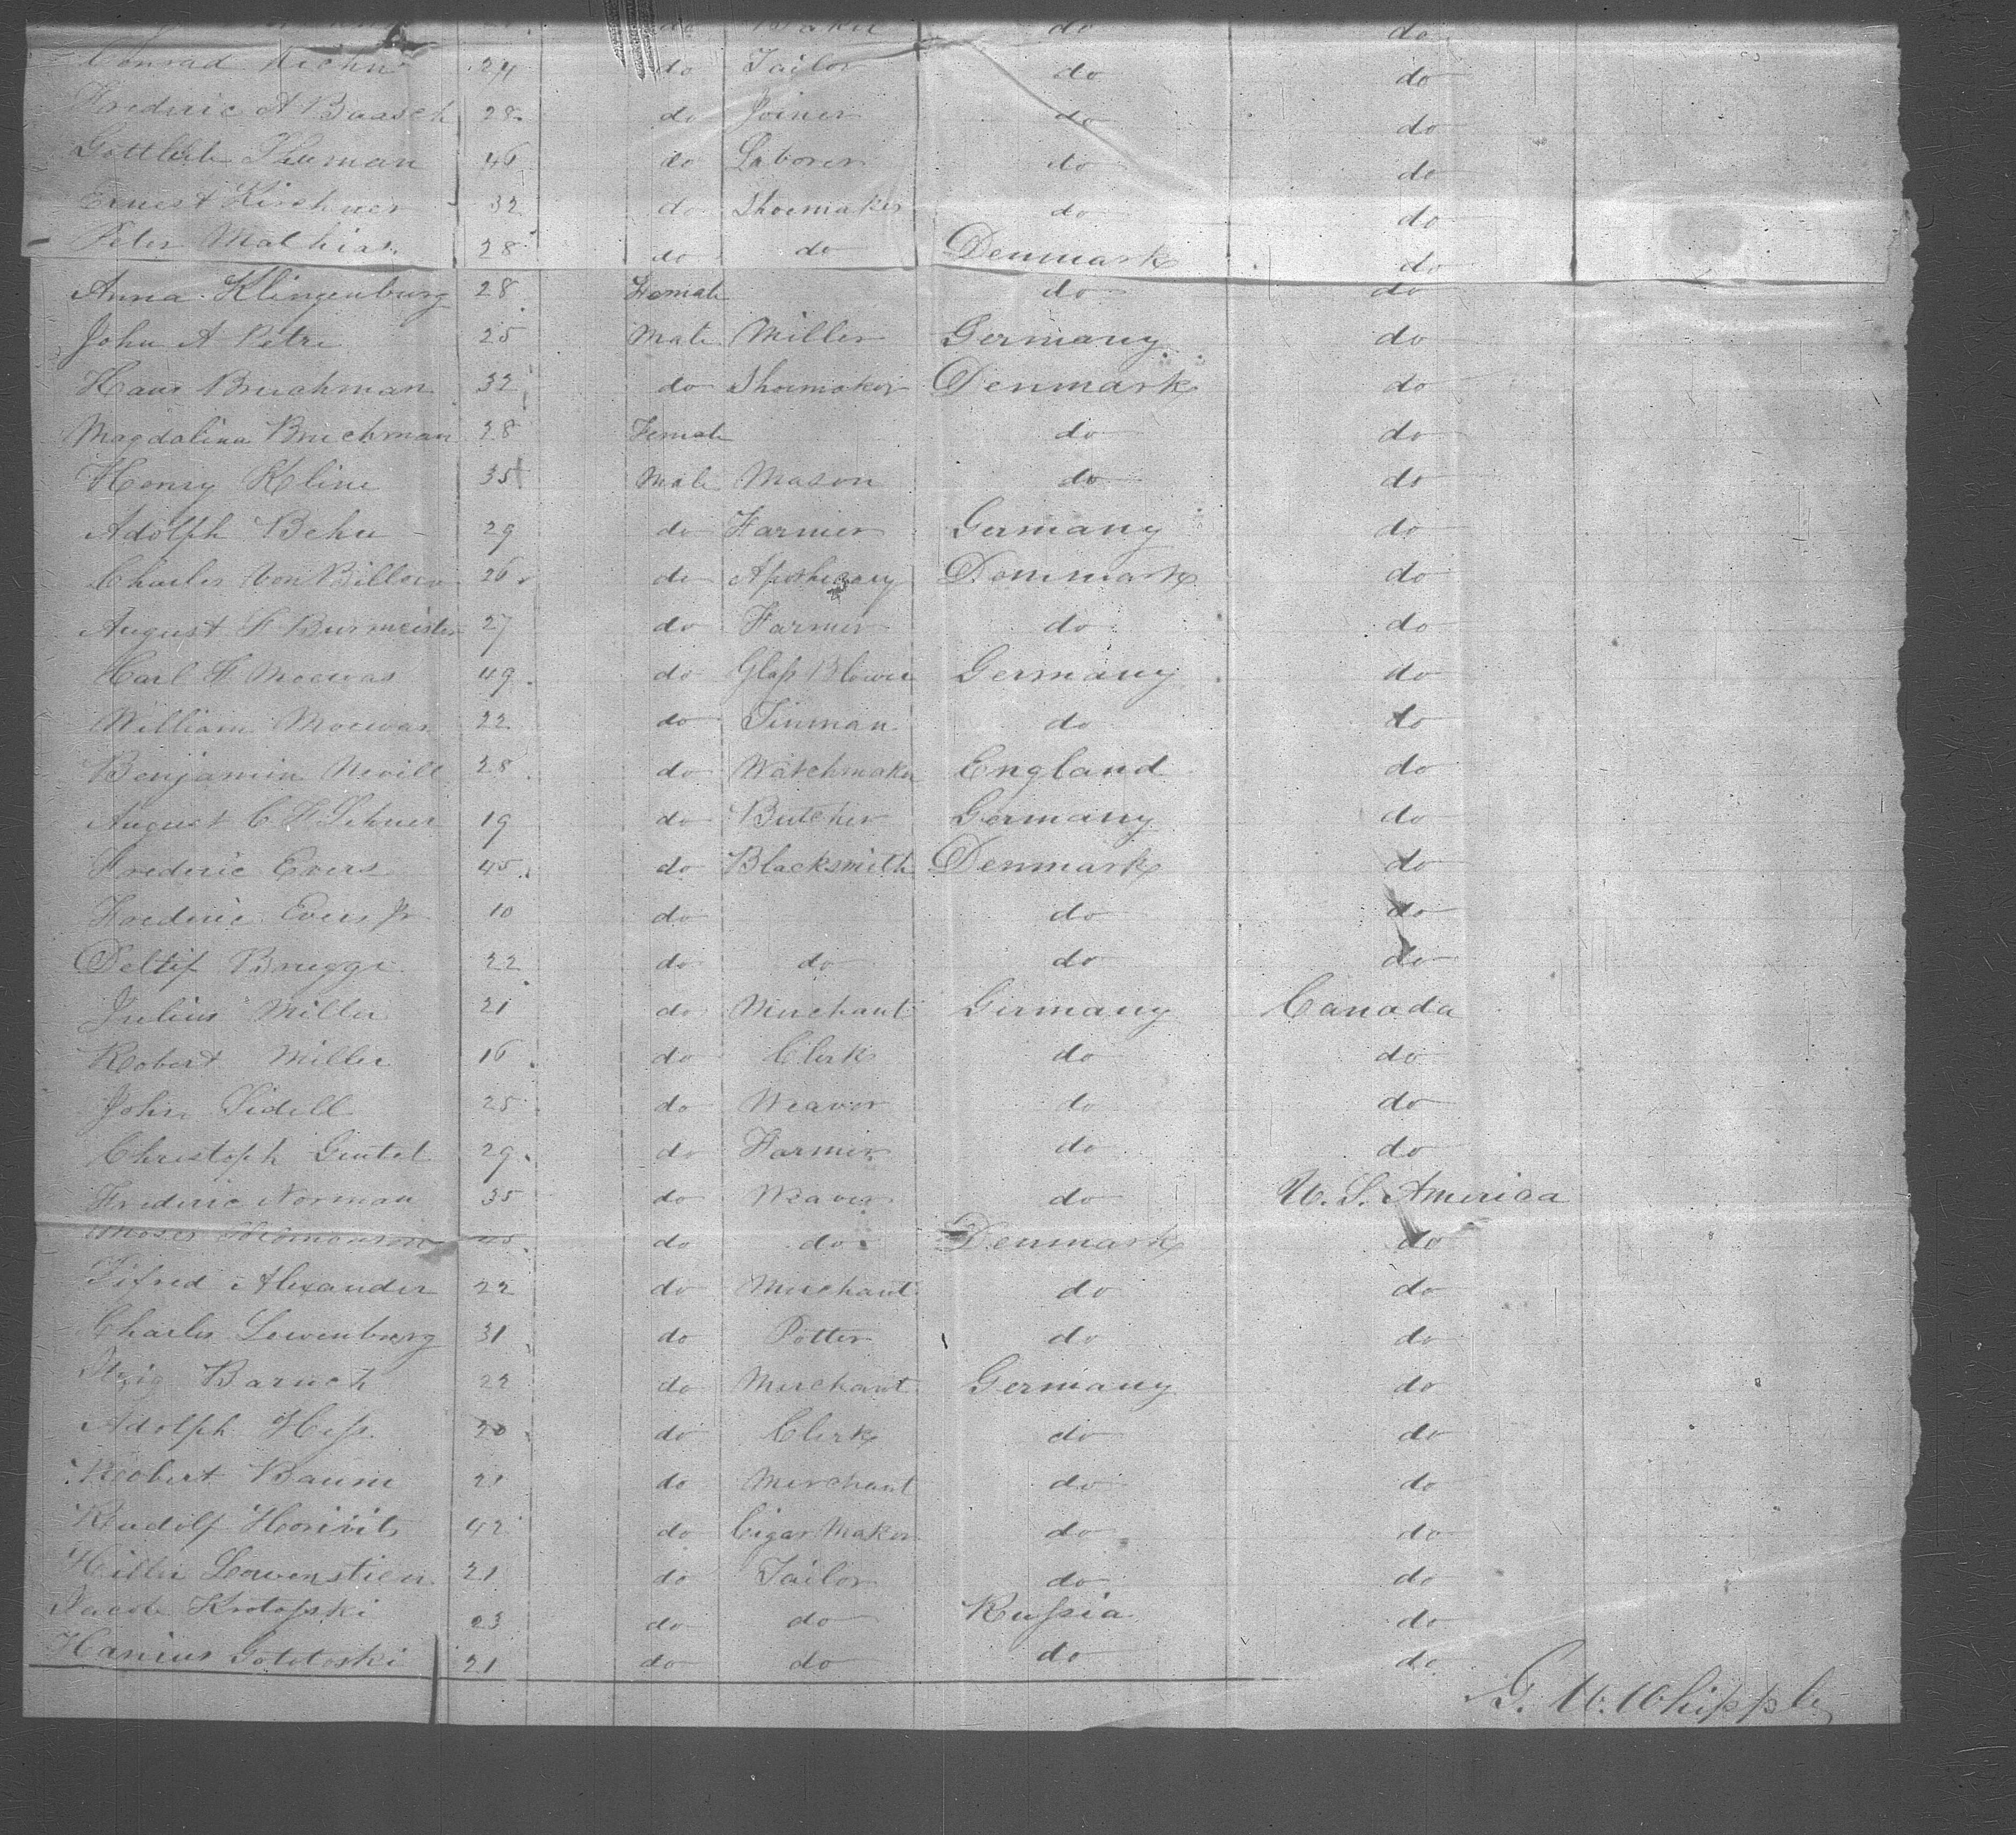 do Baker do do
Conrad Kiehn 24 do Tailor do do
Frederic A Baasch 28 do Joiner do do
Gottlieb Thuman 46 do Laborer do do
Ernest Kirchner 32 do Shoemaker do do
Peter Mathias 28 do do Denmark do
Anna Klingenburg 28 Female do do
John A Petre 25 Male Miller Germany do
Hans Bruchman 32 do Shoemaker Denmark do
Magdalina Bruchman 28 Female do do
Henry Kline 35 Male Mason do do
Adolph Behn 29 do Farmer Germany do
Charles Von Billow 26 do Apothecary Denmark do
August F Burmeister 27 do Farmer do do
Carl F Moewas 49 do Glass Blower Germany do
William Moewas 22 do Tinman do do
Benjamin Nevill 28 do Watchmaker England do
August C F Lehner 19 do Butcher Germany do
Frederic Evers 45 do Blacksmith Denmark do
Frederic Evers Jr 10 do do do
Deltif Brugge 22 do do do do
Julius Miller 21 do Merchant Germany Canada
Robert Miller 16 do Clerk do do
John Sidell 25 do Weaver do do
Christoph Gintel 29 do Farmer do do
Frederic Norman 35 do Weaver do U. S. America
Moses Solomonson do do Denmark do
Sifred Alexander 22 do Merchant do do
Charles Lewenburg 31 do Potter do do
Itzig Baruch 22 do Merchant Germany do
Adolph Hess 20 do Clerk do do
Robert Baum 21 do Merchant do do
Rudolf Horivits 42 do Cigar Maker do do
Hiller Lowenstien 21 do Tailor do do
Jacob Krotosski 23 do do Russia do
Hanius Gototoski 21 do do do do
G. W. Whipple